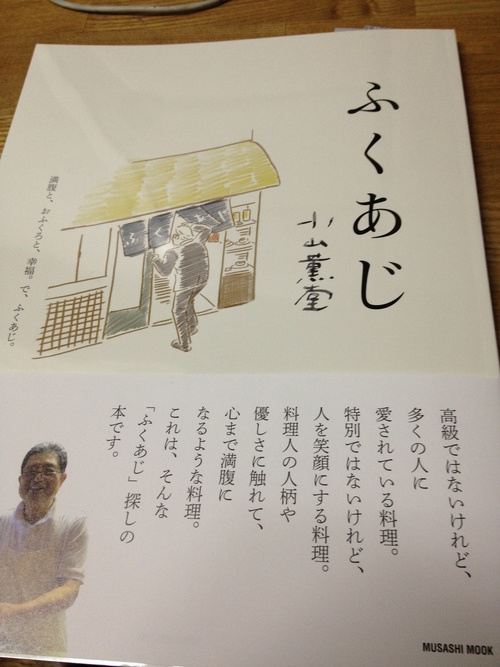 ふくあじ
小山薫堂
満腹と、おふくろと、幸福。で、ふくあじ。
ふくあじ
高級ではないけれど、
多くの人に
愛されている料理。
特別ではないけれど、
人を笑顔にする料理。
料理人の人柄や
優しさに触れて、
心まで満腹に
なるような料理。
これは、そんな
「ふくあじ」探しの
本です。
MUSASHI MOOK